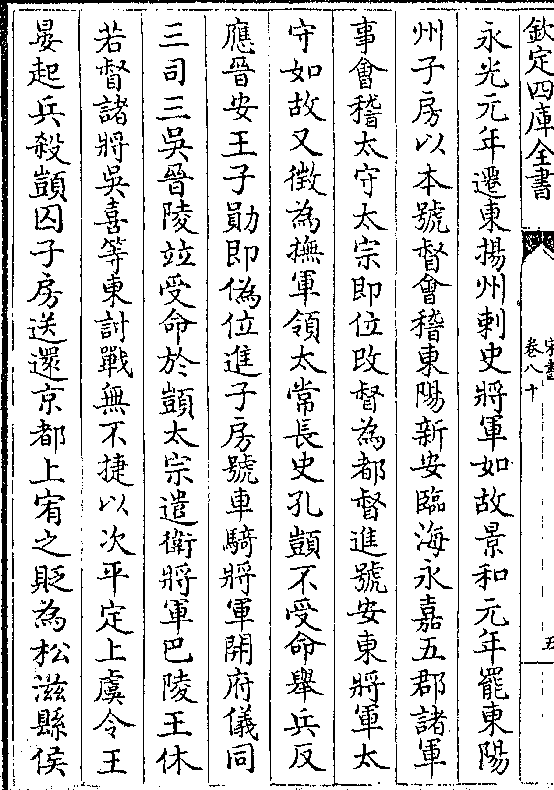 欽定四庫全書
宋書
卷八十
五
永光元年遷東揚州刺史將軍如故景和元年罷東陽
州子房以本號督會稽東陽新安臨海永嘉五郡諸軍
事會稽太守太宗即位改督為都督進號安東將軍太
守如故又徵為撫軍領太常長史孔顗不受命舉兵反
應晉安王子勛即偽位進子房號車騎將軍開府儀同
三司三吳晉陵竝受命於顗太宗遣衛將軍巴陵王休
若督諸將吳喜等東討戰無不捷以次平定上虞令王
晏起兵殺顗囚子房送還京都上宥之貶為松滋縣侯